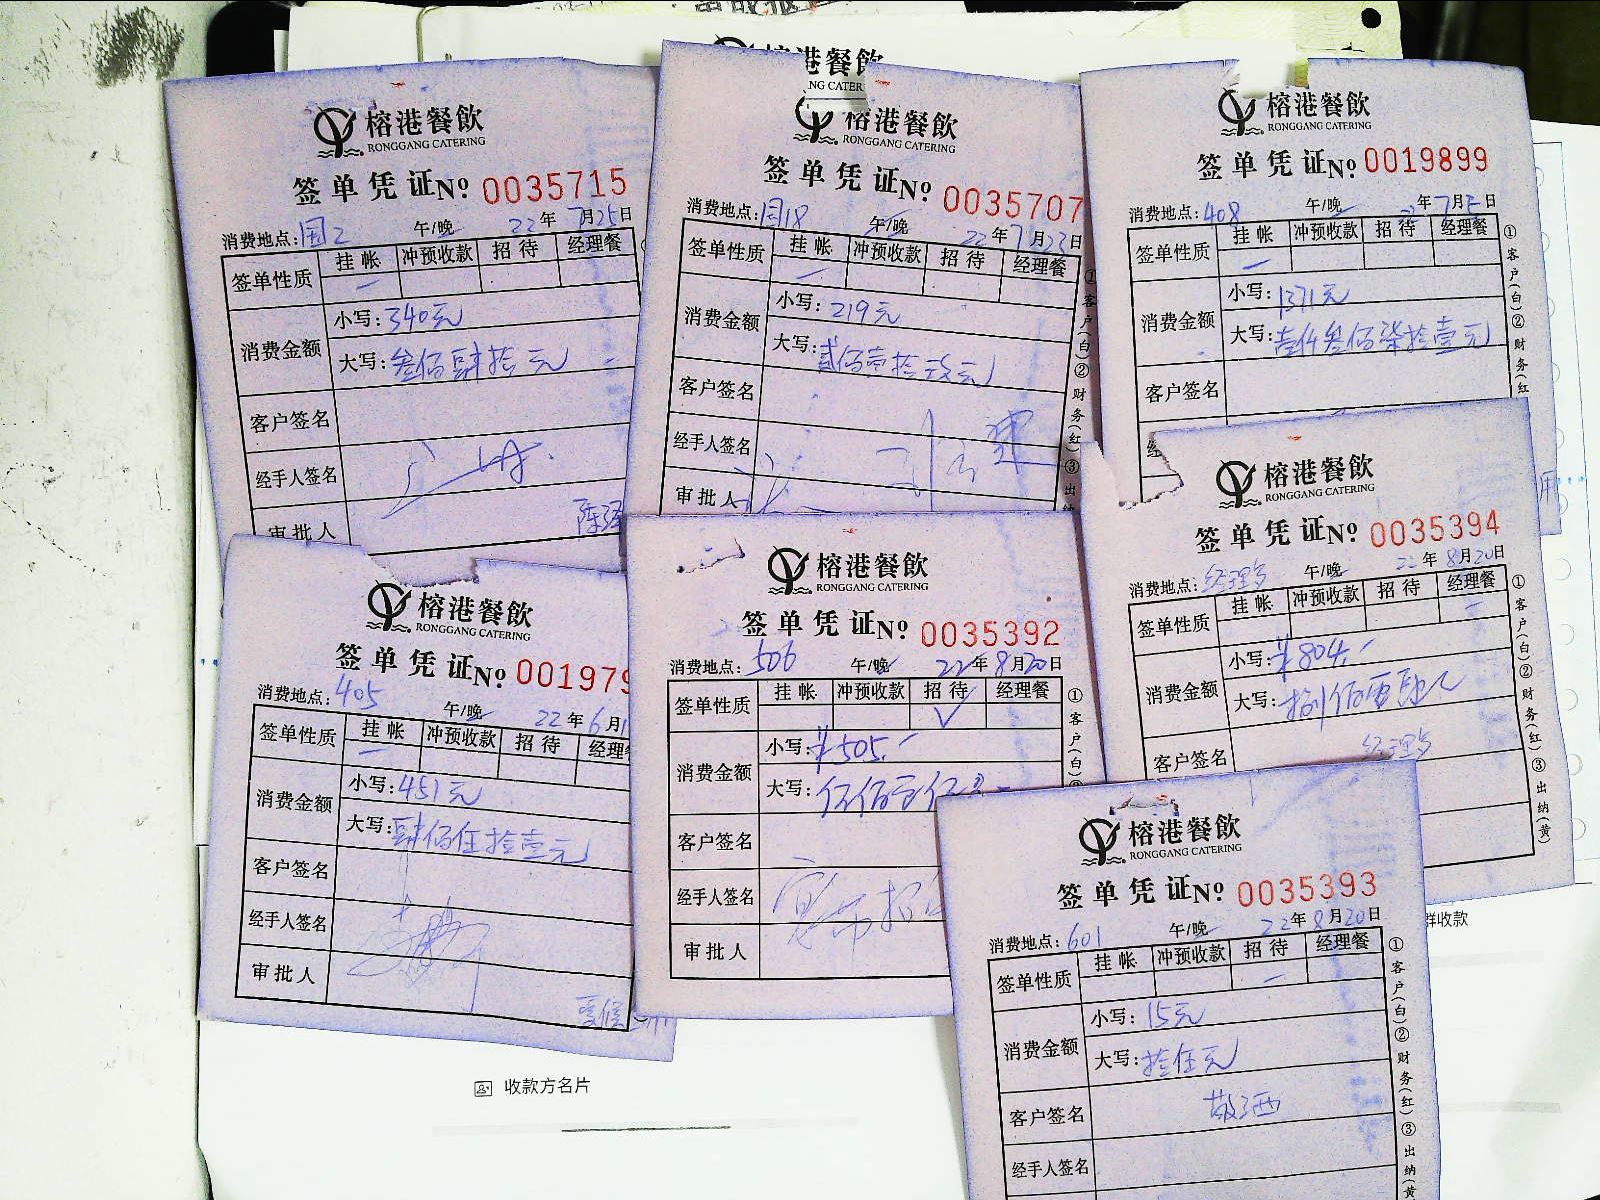 港餐飲
NG CATER
榕港餐飲
RONGGANG CATERING
签单凭证№ 0035715
消费地点: 国2 午/晚 22年7月25日
签单性质 挂帐 冲预收款 招待 经理餐
消费金额 小写: 340元
大写: 叁佰肆拾元
客户签名
经手人签名
审批人
榕港餐飲
RONGGANG CATERING
签单凭证№ 0035707
消费地点: 国18 午/晚 22年7月23日
签单性质 挂帐 冲预收款 招待 经理餐
消费金额 小写: 219元
大写: 贰佰壹拾玖元
客户签名
经手人签名
审批人
①客户(白)②财务(红)③出纳
榕港餐飲
RONGGANG CATERING
签单凭证№ 0019899
消费地点: 408 午/晚 年7月 日
签单性质 挂帐 冲预收款 招待 经理餐
消费金额 小写: 1371元
大写: 壹仟叁佰柒拾壹元
客户签名
①客户(白)②财务(红
榕港餐飲
RONGGANG CATERING
签单凭证№ 001979
消费地点: 405 午/晚 22年6月1
签单性质 挂帐 冲预收款 招待 经理
消费金额 小写: 451元
大写: 肆佰伍拾壹元
客户签名
经手人签名
审批人
榕港餐飲
RONGGANG CATERING
签单凭证№ 0035392
消费地点: 506 午/晚 22年8月20日
签单性质 挂帐 冲预收款 招待 经理餐
消费金额 小写: ¥505.-
大写: 伍佰零伍
客户签名
经手人签名
审批人
①客户(白)
榕港餐飲
RONGGANG CATERING
签单凭证№ 0035394
消费地点: 经理餐 午/晚 22年8月20日
签单性质 挂帐 冲预收款 招待 经理餐
消费金额 小写: ¥804.-
大写: 捌佰零肆元
客户签名 经理餐
①客户(白)②财务(红)③出纳(黄)
榕港餐飲
RONGGANG CATERING
签单凭证№ 0035393
消费地点: 601 午/晚 22年8月20日
签单性质 挂帐 冲预收款 招待 经理餐
消费金额 小写: 15元
大写: 拾伍元
客户签名 敬酒
经手人签名
①客户(白)②财务(红)③出纳(黄
群收款
收款方名片